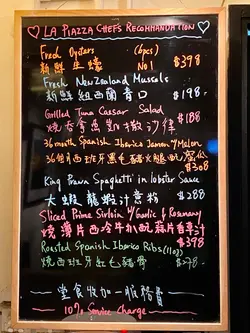 LA PIAZZA CHEFS RECOMMANDATION
Fresh Oysters (6pcs)
新鮮生蠔 No1 $398
Fresh New Zealand Mussels
新鮮紐西蘭青口 $198
Grilled Tuna Caesar Salad
燒吞拿魚凱撒沙律 $188
36 month Spanish Iberico Jamon w/ Melon
36個月西班牙黑毛豬火腿蜜瓜
$308
King Prawn Spaghetti in lobster Sauce
大蝦龍蝦汁意粉 $288
Sliced Prime Sirloin w/ Garlic & Rosemary
燒薄片西冷牛扒蒜片香草汁
$398
Roasted Spanish Iberico Ribs (11oz)
燒西班牙紅毛豬骨 $278
堂食收加一服務費
10% Service Charge